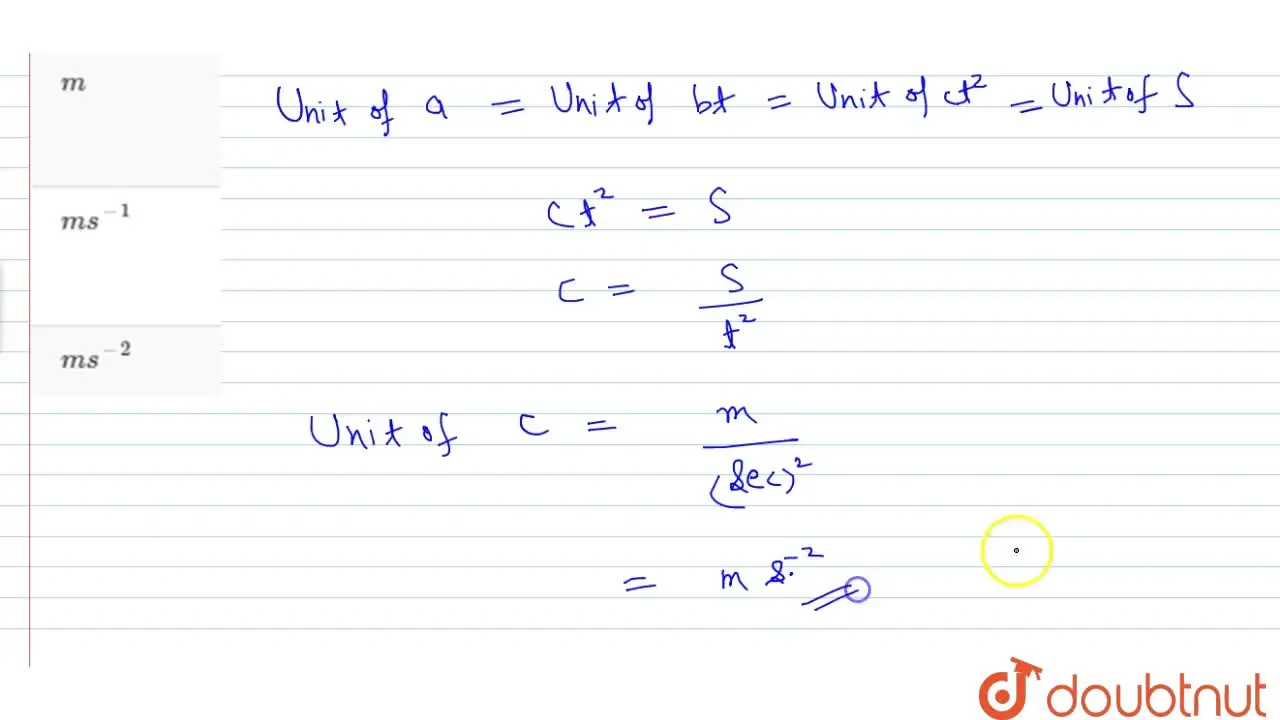 m
Unit of a = Unit of bt = Unit of ct² = Unit of S
ms⁻¹
ct² = S
c = S/t²
ms⁻²
Unit of c = m/(Sec)²
= m s⁻²
doubtnut